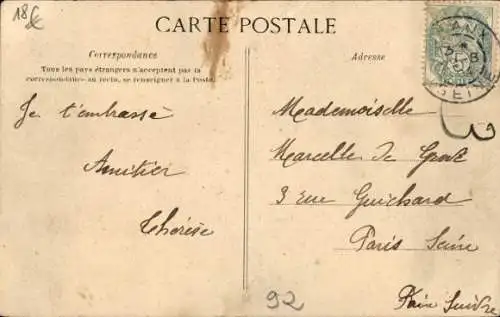 18€
CARTE POSTALE
Correspondance
Tous les pays étrangers n'acceptent pas la
correspondance au recto, se renseigner à la Poste
Je t'embrasse
Amitier
Thérèse
Adresse
Mademoiselle
Marcelle de
3 rue Guichard
Paris Seine
Faire Suivre
92